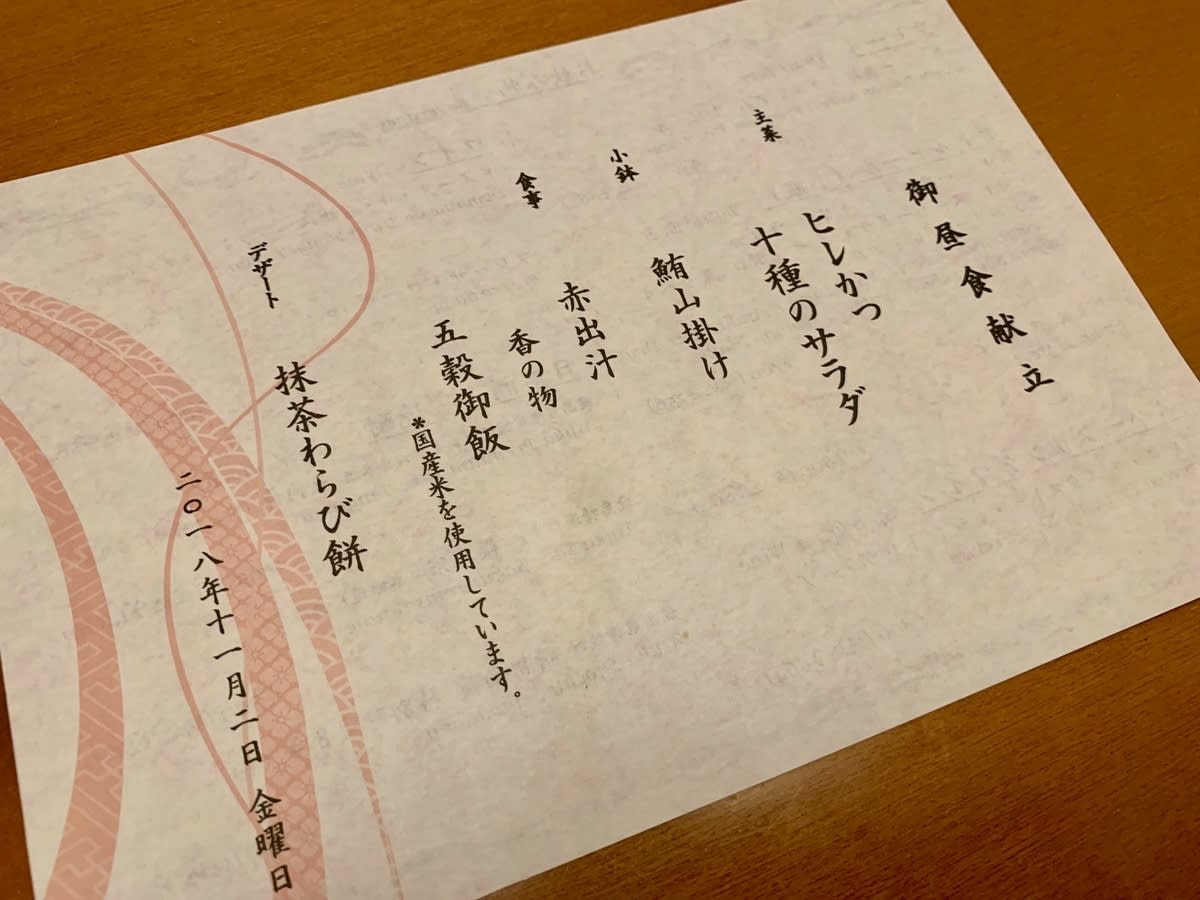 御昼食献立
主菜
ヒレかつ
十種のサラダ
小鉢
鮪山掛け
食事
赤出汁
香の物
五穀御飯
*国産米を使用しています。
デザート
抹茶わらび餅
二〇一八年十一月二日 金曜日